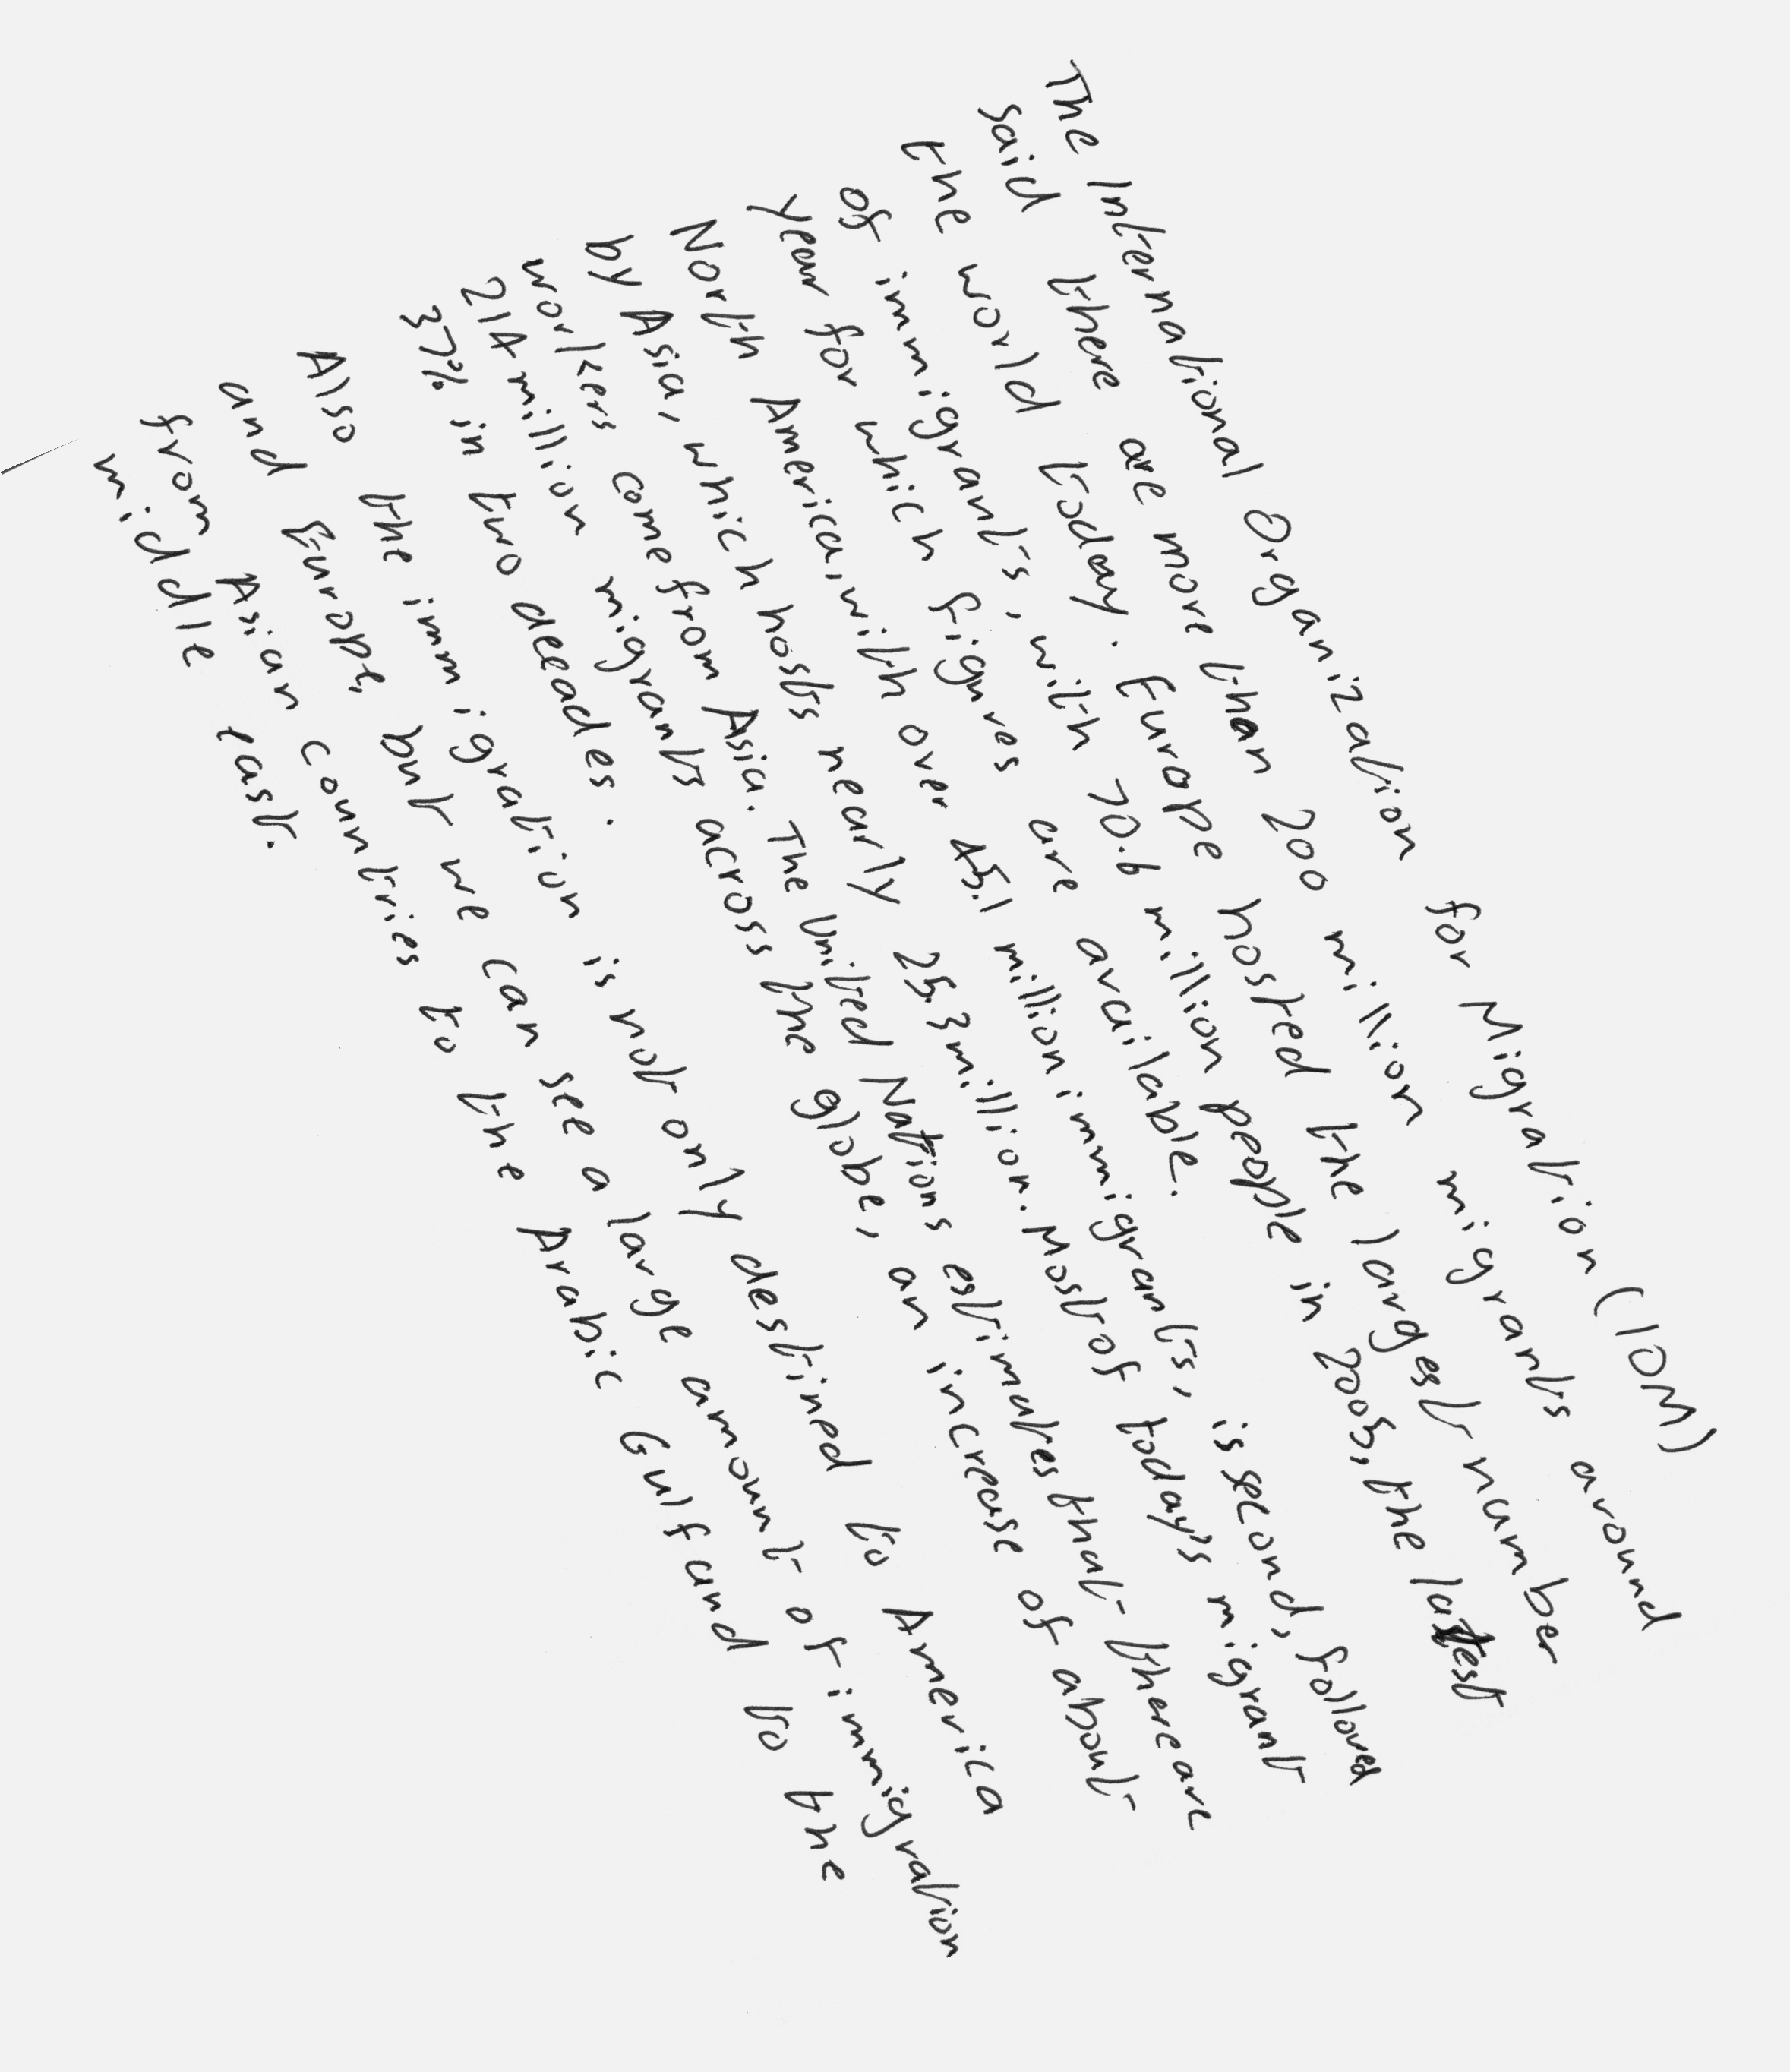 The International Organization for Migration (IOM)
said there are more than 200 million migrants around
the world today. Europe hosted the largest number
of immigrants, with 70.6 million people in 2005, the latest
year for which figures are available.
North America, with over 45.1 million immigrants, is second, followed
by Asia, which hosts nearly 25.3 million. Most of today's migrant
workers come from Asia. The United Nations estimates that there are
214 million migrants across the globe, an increase of about
37% in two decades.
Also the immigration is not only destined to America
and Europe, but we can see a large amount of immigration
from Asian countries to the Arabic Gulf and to the
middle east.